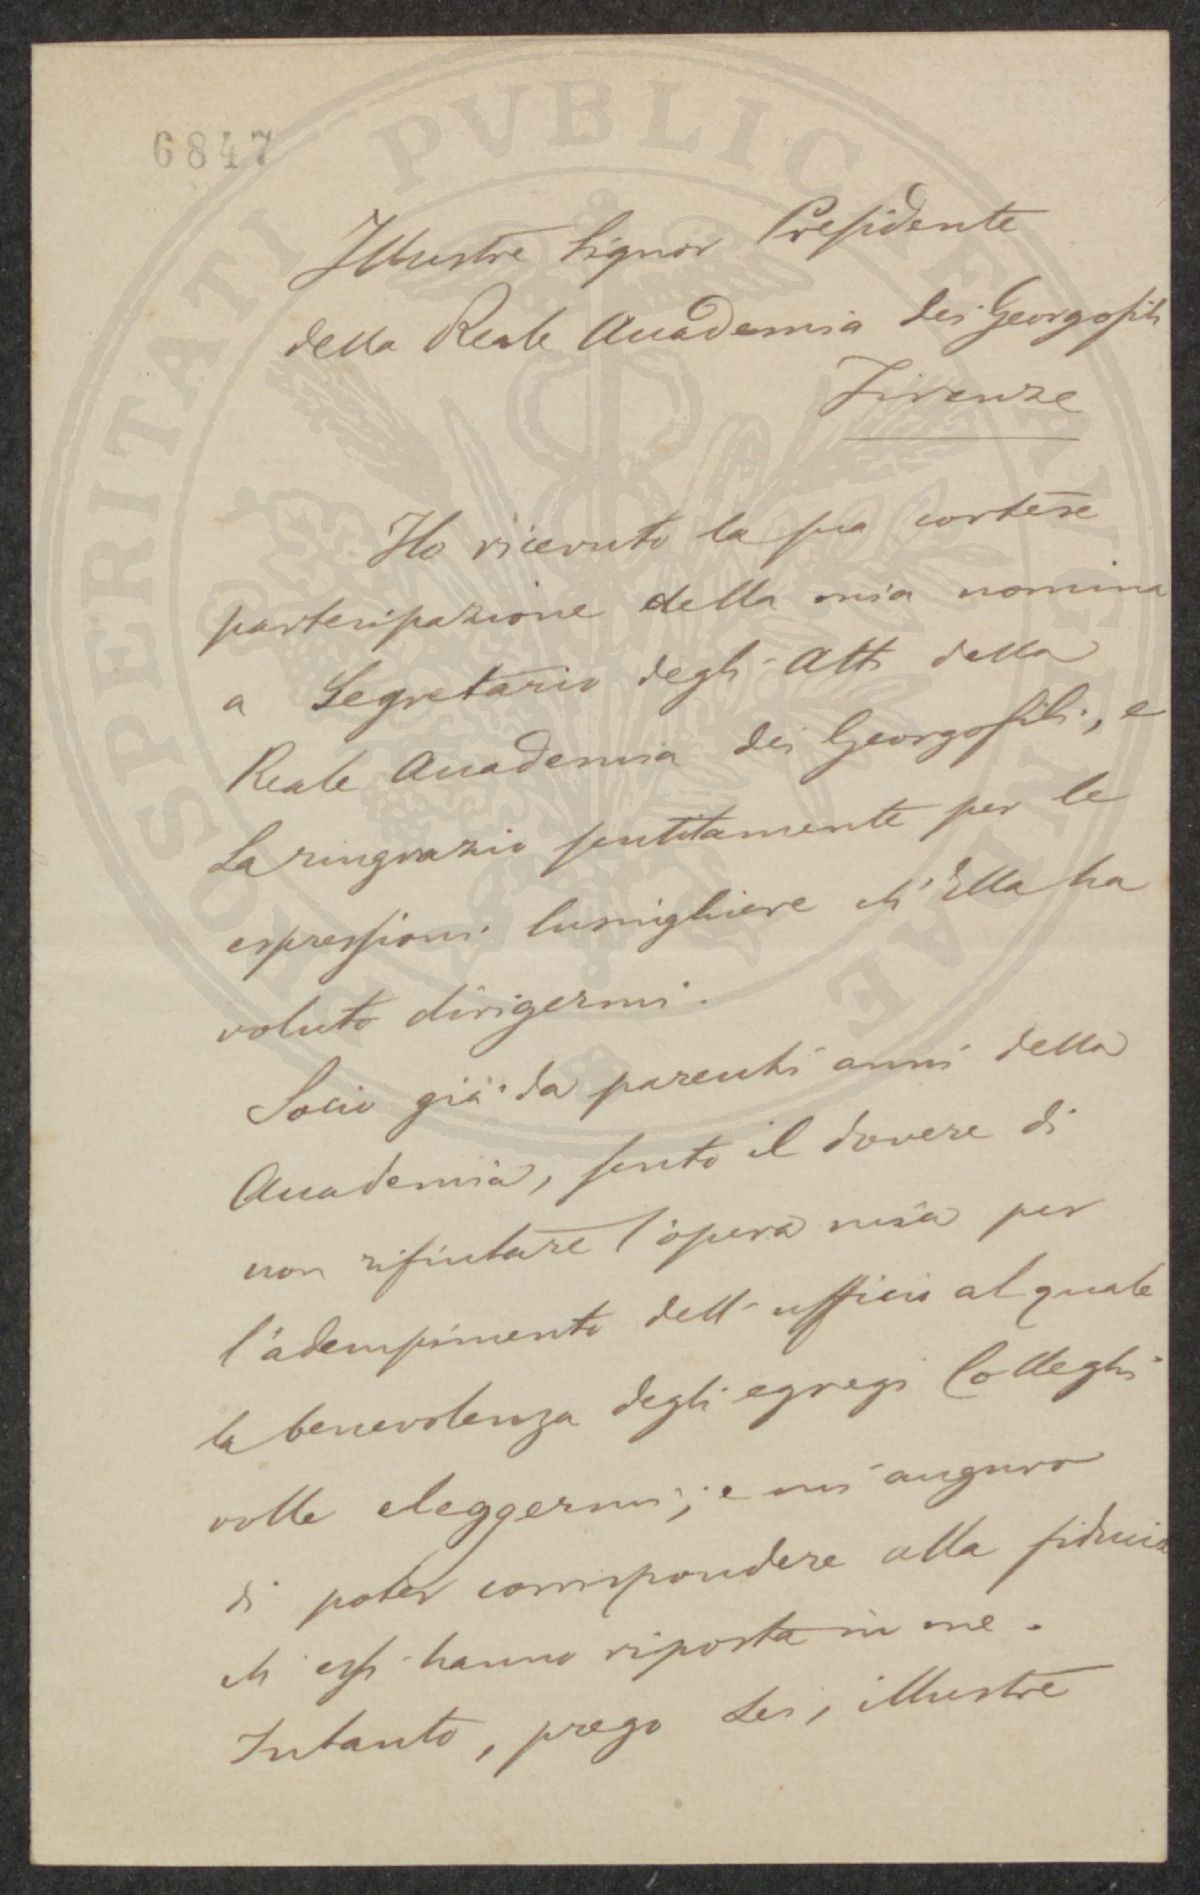 6847
Illustre Signor Presidente
della Reale Accademia dei Georgofili
Firenze
Ho ricevuto la sua cortese
partecipazione della mia nomina
a Segretario degli Atti della
Reale Accademia dei Georgofili, e
La ringrazio sentitamente per le
espressioni lusinghiere ch'Ella ha
voluto dirigermi.
Socio già da parecchi anni della
Accademia, sento il dovere di
non rifiutare l'opera mia per
l'adempimento dell'ufficio al quale
la benevolenza degli egregi Colleghi
volle eleggermi; e mi auguro
di poter corrispondere alla fiducia
ch'essi hanno riposta in me.
Intanto, prego Lei, illustre
PROSPERITATI PVBLICAE AVGENDAE